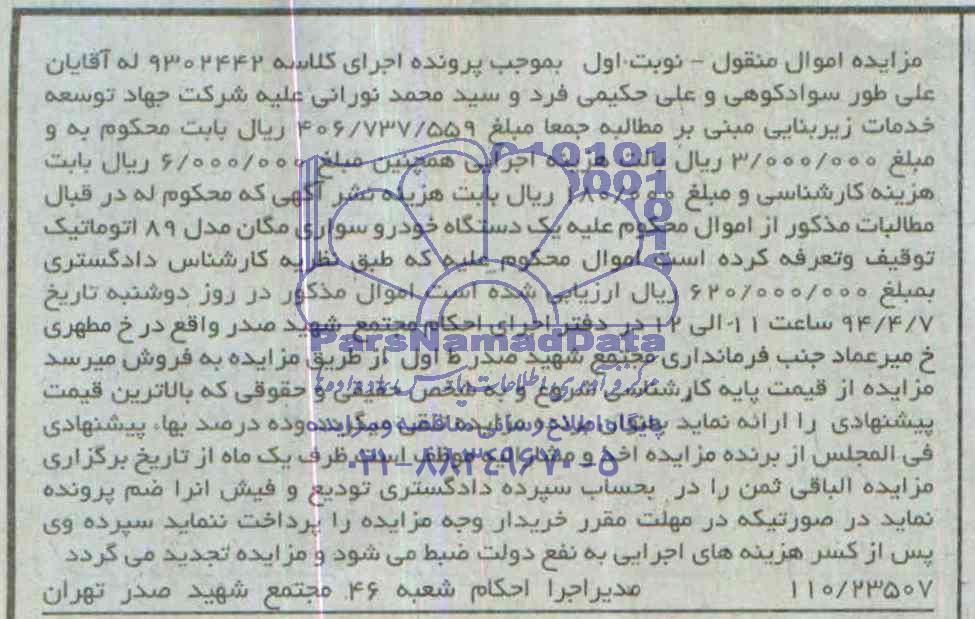 مزایده اموال منقول - نوبت اول بموجب پرونده اجرای کلاسه ۹۳۰۲۴۴۲ له آقایان
علی طور سوادکوهی و علی حکیمی فرد و سید محمد نورانی علیه شرکت جهاد توسعه
خدمات زیربنایی مبنی بر مطالبه جمعا مبلغ ۴۰۶/۷۳۷/۵۵۹ ریال بابت محکوم به و
مبلغ ۳/۰۰۰/۰۰۰ ریال بابت هزینه اجرایی همچنین مبلغ ۶/۰۰۰/۰۰۰ ریال بابت
هزینه کارشناسی و مبلغ ریال بابت هزینه نشر آگهی که محکوم له در قبال
مطالبات مذکور از اموال محکوم علیه یک دستگاه خودرو سواری مگان مدل ۸۹ اتوماتیک
توقیف وتعرفه کرده است اموال محکوم علیه که طبق نظریه کارشناس دادگستری
بمبلغ ۶۲۰/۰۰۰/۰۰۰ ریال ارزیابی شده است اموال مذکور در روز دوشنبه تاریخ
۹۴/۴/۷ ساعت ۱۱ الی ۱۲ در دفتر اجرای احکام مجتمع شهید صدر واقع در خ مطهری
خ میرعماد جنب فرمانداری مجتمع شهید صدر ط اول از طریق مزایده به فروش میرسد
مزایده از قیمت پایه کارشناسی شروع و به شخص حقیقی و حقوقی که بالاترین قیمت
پیشنهادی را ارائه نماید بعنوان برنده مزایده تلقی میگردد وده درصد بهاء پیشنهادی
فی المجلس از برنده مزایده اخذ و مشارالیه موظف است ظرف یک ماه از تاریخ برگزاری
مزایده الباقی ثمن را در بحساب سپرده دادگستری تودیع و فیش انرا ضم پرونده
نماید در صورتیکه در مهلت مقرر خریدار وجه مزایده را پرداخت ننماید سپرده وی
پس از کسر هزینه های اجرایی به نفع دولت ضبط می شود و مزایده تجدید می گردد
۱۱۰/۲۳۵۰۷ مدیراجرا احکام شعبه ۴۶ مجتمع شهید صدر تهران
ParsNamadData
۰۲۱-۸۸۳۴۹۶۷۰-۵